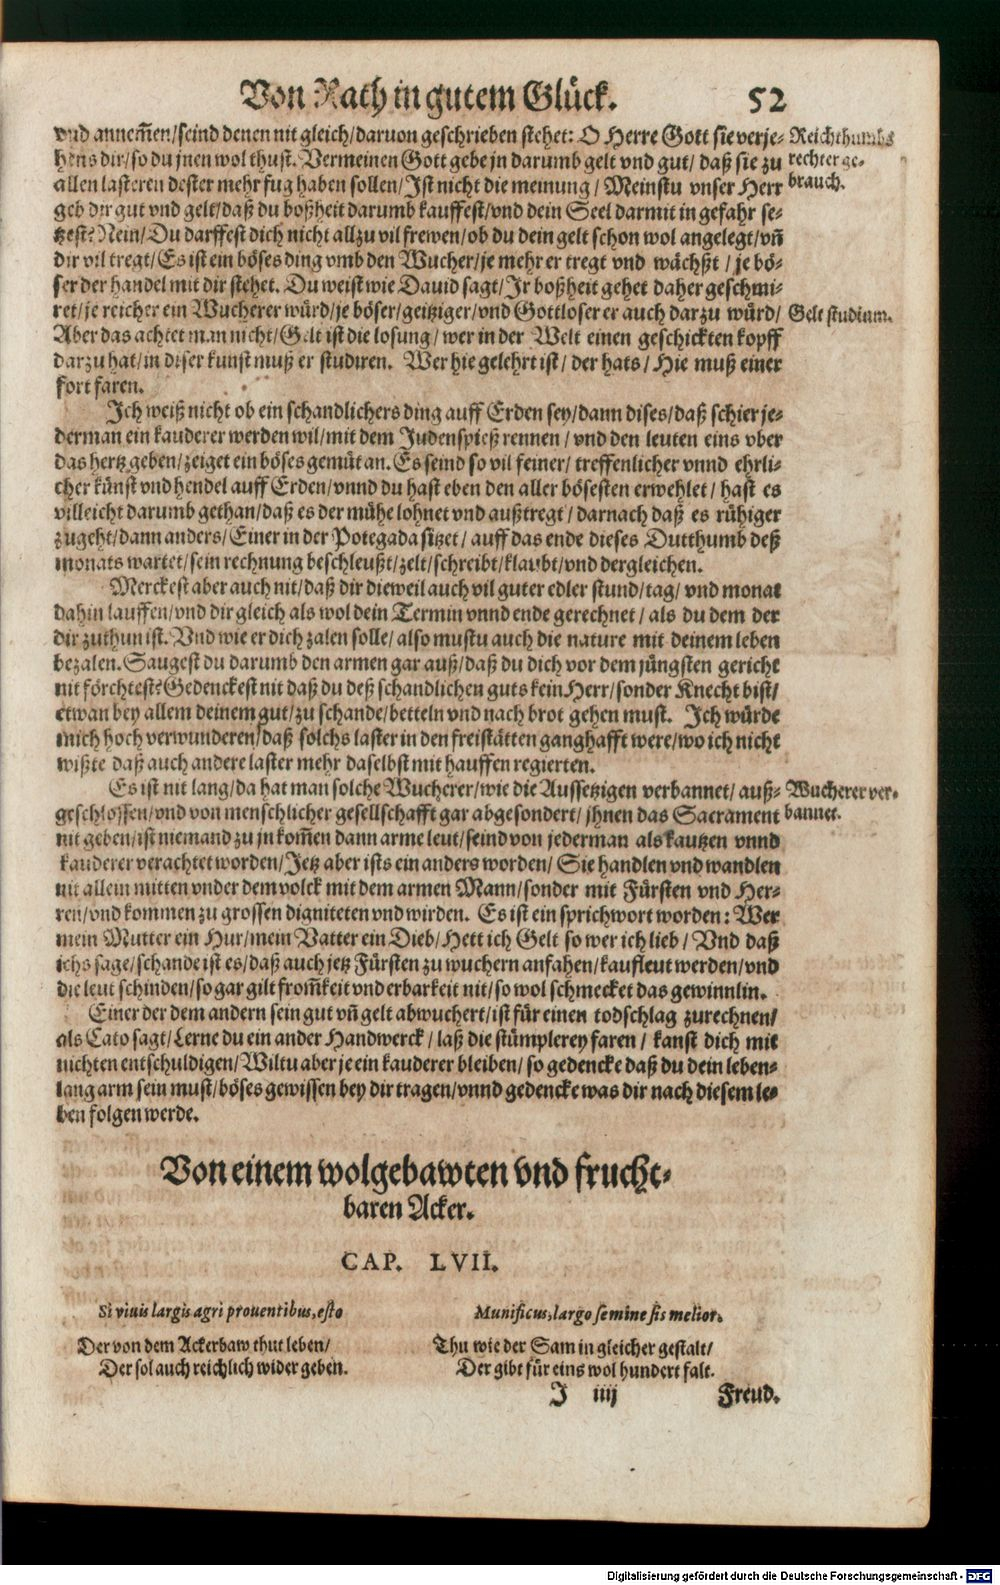 Von Rath in gutem Glück. 52
vnd annem̃en/seind denen nit gleich/daruon geschrieben stehet: O Herre Gott sie verje-
hens dir/so du jnen wol thust. Vermeinen Gott gebe jn darumb gelt vnd gut/ daß sie zu
allen lasteren dester mehr fug haben sollen/Ist nicht die meinung/ Meinstu vnser Herr
geb dir gut vnd gelt/daß du boßheit darumb kauffest/vnd dein Seel darmit in gefahr se-
tzest? Nein/Du darffest dich nicht allzu vil frewen/ob du dein gelt schon wol angelegt/vñ
dir vil tregt/Es ist ein böses ding vmb den Wucher/je mehr er tregt vnd wächßt / je bö-
ser der handel mit dir stehet. Du weist wie Dauid sagt/Ir boßheit gehet daher geschmi-
ret/je reicher ein Wucherer würd/je böser/geitziger/vnd Gottloser er auch darzu würd/
Aber das achtet man nicht/Gelt ist die losung/wer in der Welt einen geschickten kopff
darzu hat/in diser kunst muß er studiren. Wer hie gelehrt ist/ der hats/ Hie muß einer
fort faren.
Reichthumbs
rechter ge-
brauch.
Gelt studium.
Ich weiß nicht ob ein schandlichers ding auff Erden sey/dann dises/daß schier je-
derman ein kauderer werden wil/mit dem Judenspieß rennen / vnd den leuten eins vber
das hertz geben/zeiget ein böses gemüt an. Es seind so vil feiner/ treffenlicher vnnd ehrli-
cher künst vnd hendel auff Erden/vnnd du hast eben den aller bösesten erwehlet / hast es
villeicht darumb gethan/daß es der mühe lohnet vnd außtregt / darnach daß es rühiger
zugeht/dann anders/Einer in der Potegada sitzet/ auff das ende dieses Dutthumb deß
monats wartet/sein rechnung beschleußt/zelt/schreibt/klaubt/vnd dergleichen.
Merckest aber auch nit/daß dir dieweil auch vil guter edler stund/tag/ vnd monat
dahin lauffen/vnd dir gleich als wol dein Termin vnnd ende gerechnet/ als du dem der
dir zuthun ist. Vnd wie er dich zalen solle/also mustu auch die nature mit deinem leben
bezalen. Saugest du darumb den armen gar auß/daß du dich vor dem jüngsten gericht
nit förchtest? Gedenckest nit daß du deß schandlichen guts kein Herr/sonder Knecht bist/
etwan bey allem deinem gut/zu schande/betteln vnd nach brot gehen must. Ich würde
mich hoch verwunderen/daß solchs laster in den freistätten ganghafft were/wo ich nicht
wißte daß auch andere laster mehr daselbst mit hauffen regierten.
Es ist nit lang/da hat man solche Wucherer/wie die Aussetzigen verbannet/ auß-
geschlossen/vnd von menschlicher gesellschafft gar abgesondert/ jhnen das Sacrament
nit geben/ist niemand zu jn kom̃en dann arme leut/seind von jederman als kautzen vnnd
kauderer verachtet worden/Jetz aber ists ein anders worden/ Sie handlen vnd wandlen
nit allein mitten vnder dem volck mit dem armen Mann/sonder mit Fürsten vnd Her-
ren/vnd kommen zu grossen digniteten vnd wirden. Es ist ein sprichwort worden: Wer
mein Mutter ein Hur/mein Vatter ein Dieb/Hett ich Gelt so wer ich lieb / Vnd daß
ichs sage/schande ist es/daß auch jetz Fürsten zu wuchern anfahen/kaufleut werden/vnd
die leut schinden/so gar gilt from̃keit vnd erbarkeit nit/so wol schmecket das gewinnlin.
Wucherer ver-
bannet.
Einer der dem andern sein gut vñ gelt abwuchert/ist für einen todschlag zurechnen/
als Cato sagt/Lerne du ein ander Handwerck/ laß die stümplerey faren / kanst dich mit
nichten entschuldigen/Wiltu aber je ein kauderer bleiben/ so gedencke daß du dein leben-
lang arm sein must/böses gewissen bey dir tragen/vnnd gedencke was dir nach diesem le-
ben folgen werde.
Von einem wolgebawten vnd frucht-
baren Acker.
CAP. LVII.
Si viuis largis agri prouentibus, esto
Munificus, largo semine sis melior.
Der von dem Ackerbaw thut leben/
Der sol auch reichlich wider geben.
Thu wie der Sam in gleicher gestalt/
Der gibt für eins wol hundert falt.
J iiij Freud.
Digitalisierung gefördert durch die Deutsche Forschungsgemeinschaft - DFG